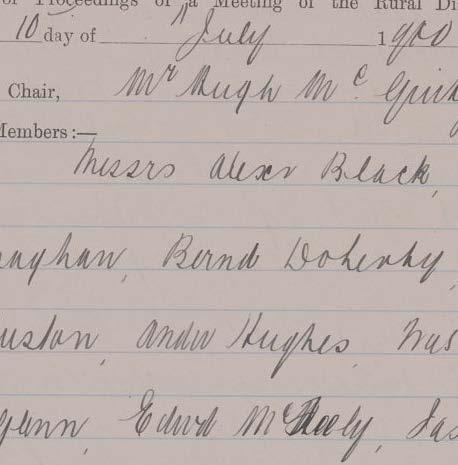 of Proceedings of a Meeting of the Rural Di
10 day of July 1900
Chair, Mr Hugh Mc
Members:—
Messrs Alexr Black,
aghan, Bernd Doherty,
uston, Andw Hughes,
glenn, Edwd McFeely, Jas